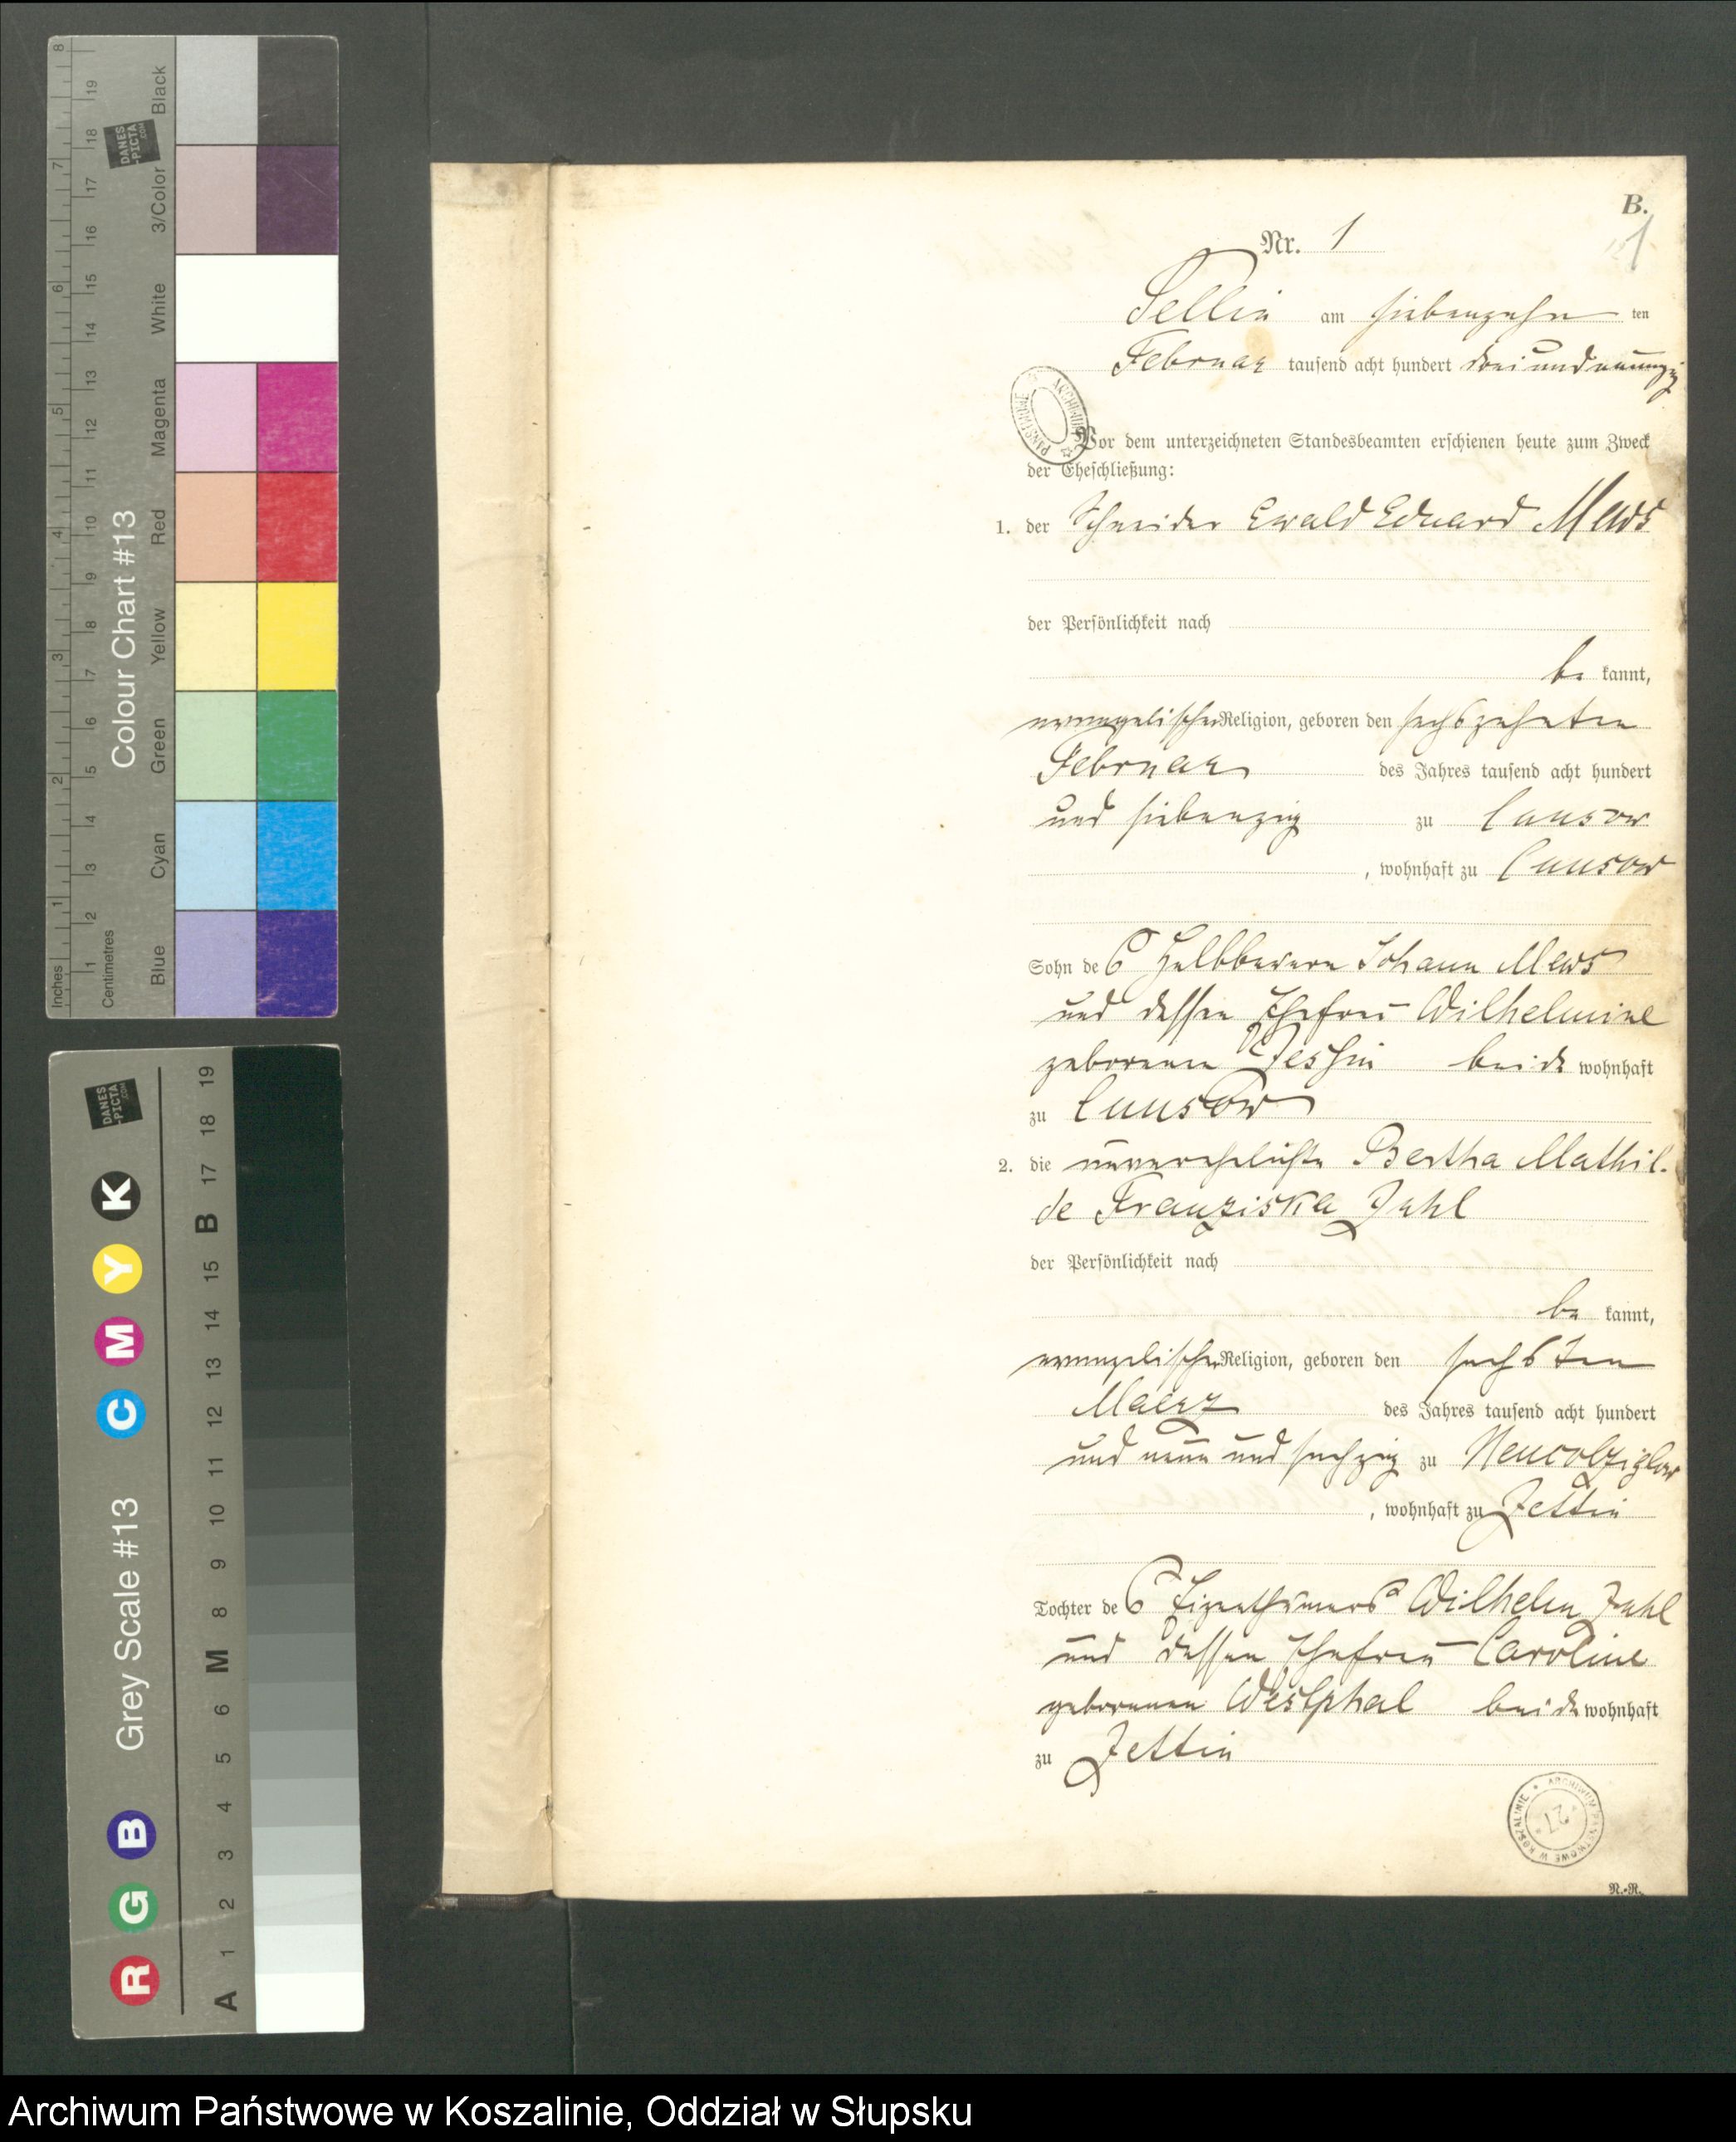 Inches
Centimetres
Colour Chart #13
Blue Cyan Green Yellow Red Magenta White 3/Color Black
DANES
-PICTA
.COM
1 2 3 4 5 6 7 8
1 2 3 4 5 6 7 8 9 10 11 12 13 14 15 16 17 18 19
Grey Scale #13
R G B C M Y K
A 1 2 3 4 5 6 M 8 9 10 11 12 13 14 15 B 17 18 19
DANES
-PICTA
.COM
B.
1
Nr. 1
Sellin am siebenzehn ten
Februar tausend acht hundert drei und neunzig
Vor dem unterzeichneten Standesbeamten erschienen heute zum Zweck
der Eheschließung:
1. der Schneider Ewald Eduard Mews
der Persönlichkeit nach
be kannt,
evangelischer Religion, geboren den sechszehnten
Februar des Jahres tausend acht hundert
und siebenzig zu Cunsow
, wohnhaft zu Cunsow
Sohn des Halbbauern Johann Mews
und dessen Ehefrau Wilhelmine
geborenen beide wohnhaft
zu Cunsow
2. die unverehelichte Bertha Mathil-
de Franziska Zahl
der Persönlichkeit nach
be kannt,
evangelischer Religion, geboren den sechsten
Maerz des Jahres tausend acht hundert
und neun und sechzig zu Neucolziglow
, wohnhaft zu Zettin
Tochter des Eigenthümers Wilhelm Zahl
und dessen Ehefrau Caroline
geborenen Westphal beide wohnhaft
zu Zettin
ARCHIWUM PAŃSTWOWE W KOSZALINIE
27
N.-R.
Archiwum Państwowe w Koszalinie, Oddział w Słupsku